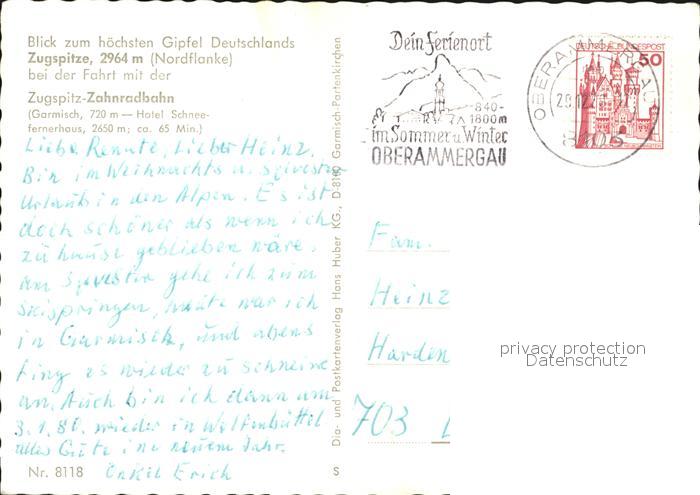 Blick zum höchsten Gipfel Deutschlands
Zugspitze, 2964 m (Nordflanke)
bei der Fahrt mit der
Zugspitz-Zahnradbahn
(Garmisch, 720 m — Hotel Schnee-
fernerhaus, 2650 m; ca. 65 Min.)
Liebe Renate, Lieber Heinz.
Bin im Weihnachts u. Sylvester
Urlaub in den Alpen. Es ist
doch schöner als wenn ich
zu hause geblieben wäre.
am Sylvester gehe ich zum
Skispringen, heute war ich
in Garmisch, und abens
fing es wieder zu schneine
an. Auch bin ich dann am
3.1.80. wieder in Wolfenbüttel
alles Gute im neuem Jahr.
Onkel Erich
Nr. 8118
S
Dia- und Postkartenverlag Hans Huber KG., D-8100 Garmisch-Partenkirchen
Dein Ferienort
840-
1800m
im Sommer u. Winter
OBERAMMERGAU
OBERAMMERGAU
8103
DEUTSCHE BUNDESPOST
50
Fam.
Heinz
Harden
703
privacy protection
Datenschutz